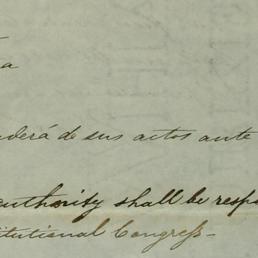 a
derá de sus actos ante
authority shall be respo
titutional Congress-